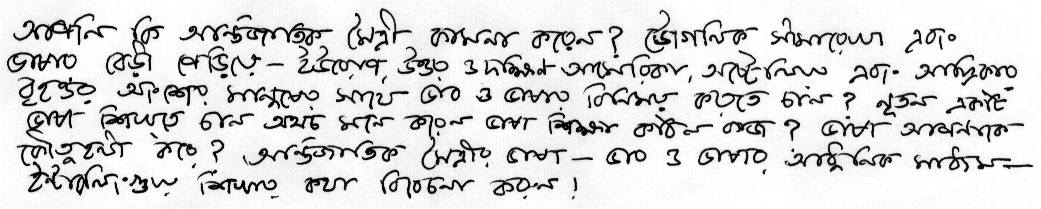 আপনি কি আর্ন্তজাতিক মৈত্রী কামনা করেন? ভৌগলিক সীমারেখা এবং
ভাষার বেড়ী পেড়িয়ে – ইউরোপ, উত্তর ও দক্ষিণ আমেরিকা, অষ্ট্রেলিয়া এবং আফ্রিকার
বৃহত্তর অংশের মানুষের সাথে ভাব ও ভাষার বিনিময় করতে চান? নূতন একটি
ভাষা শিখতে চান অথচ মনে করেন ভাষা শিক্ষা কঠিন কাজ? ভাষা আপনাকে
কৌতুহলী করে? আর্ন্তজাতিক মৈত্রীর ভাষা – ভাব ও ভাষার আধুনিক মাধ্যম –
ইন্টারলিংগুয়া শিখার কথা বিবেচনা করুন!